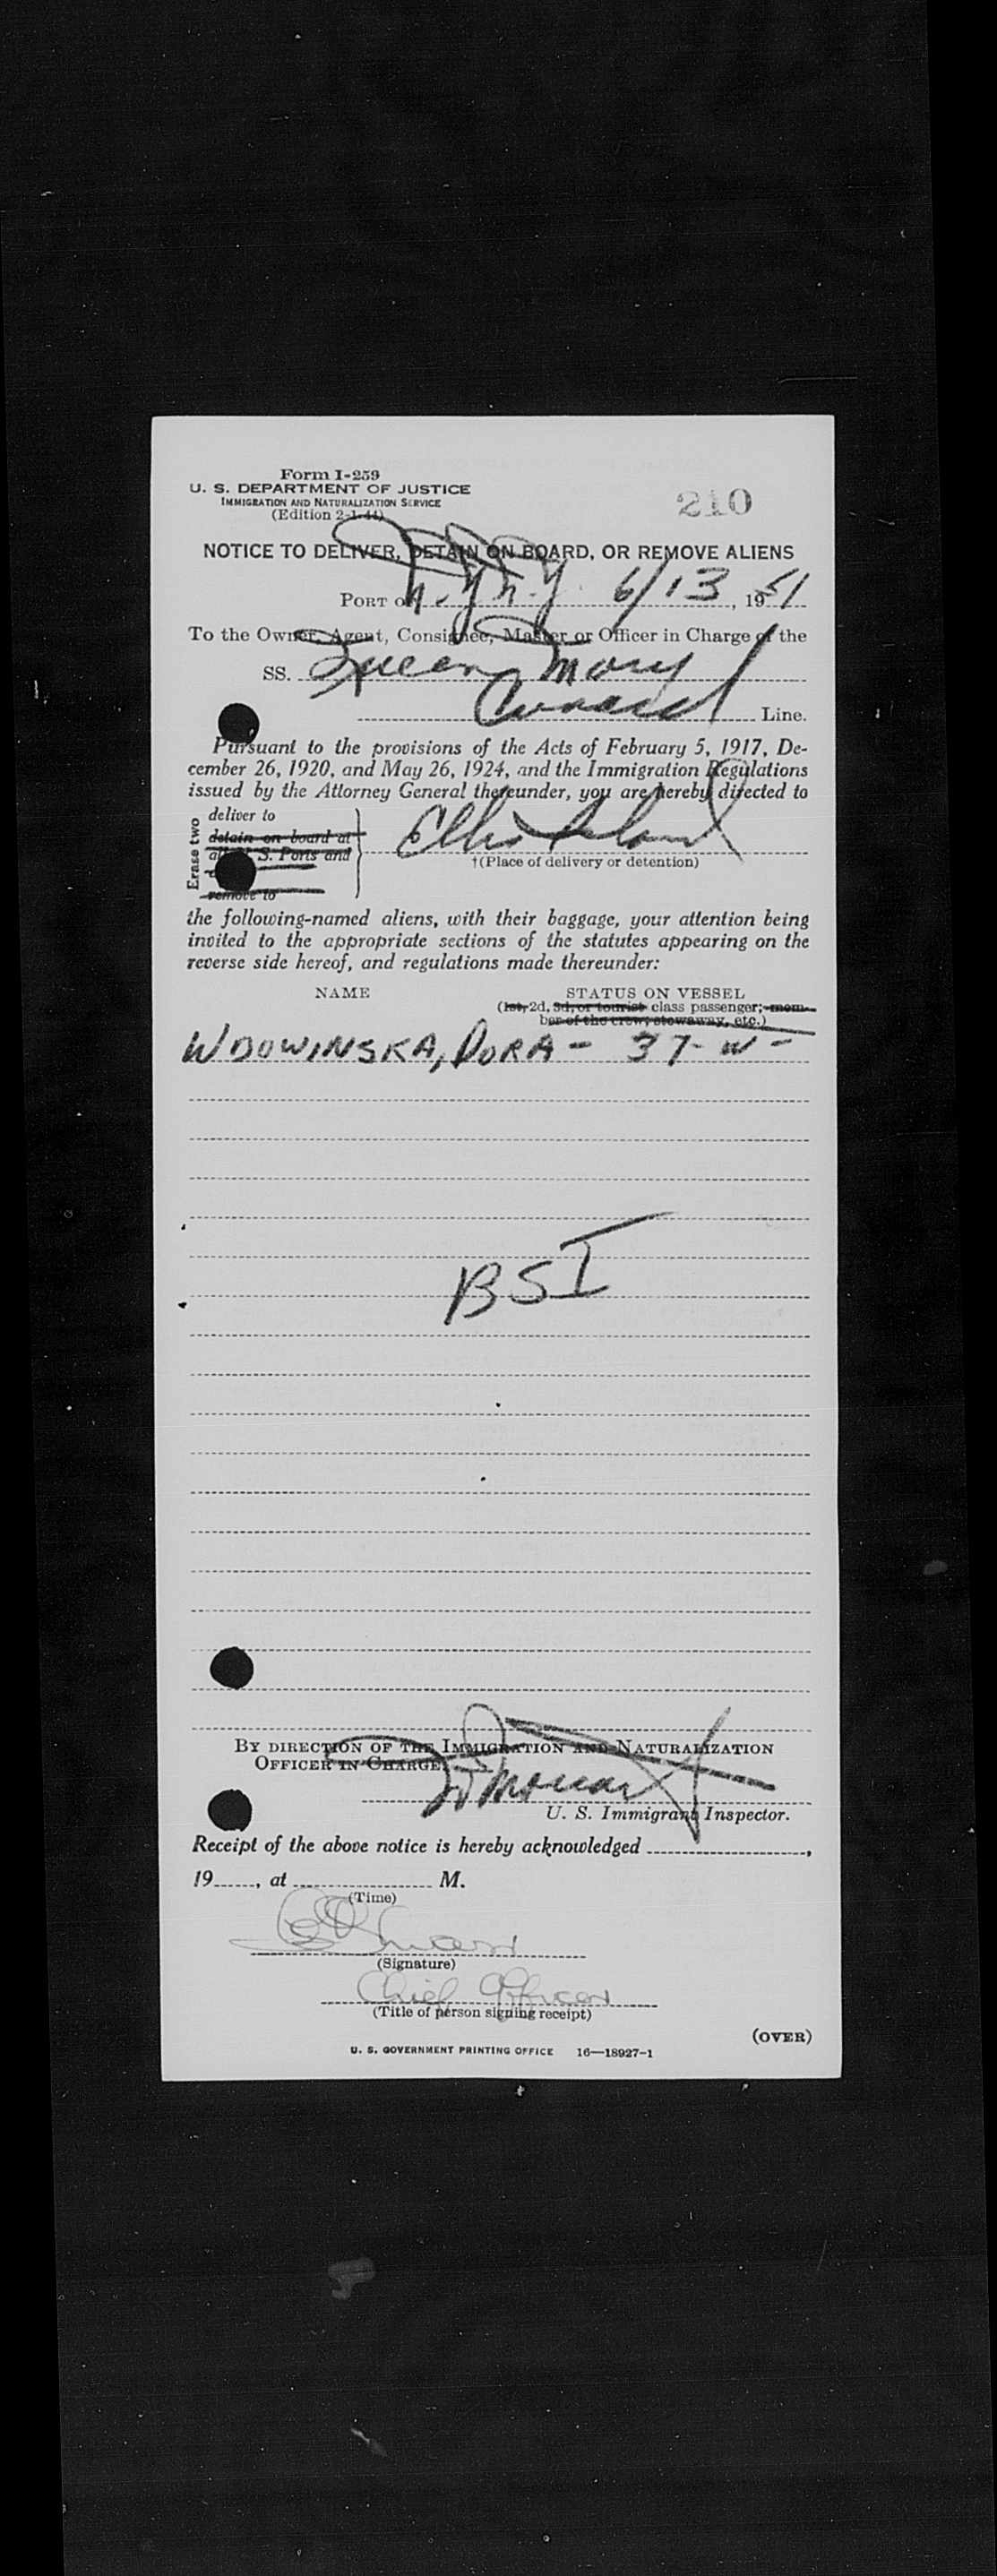 Form I-259
U. S. DEPARTMENT OF JUSTICE
IMMIGRATION AND NATURALIZATION SERVICE
(Edition 2-1-44)
210
NOTICE TO DELIVER, DETAIN ON BOARD, OR REMOVE ALIENS
PORT OF N.Y. N.Y. 6/13, 1951
To the Owner, Agent, Consignee, Master or Officer in Charge of the
SS. Queen Mary
Cunard Line.
Pursuant to the provisions of the Acts of February 5, 1917, De-
cember 26, 1920, and May 26, 1924, and the Immigration Regulations
issued by the Attorney General thereunder, you are hereby directed to
Erase two
deliver to
detain on board at
all U. S. Ports and
remove to
Ellis Island
†(Place of delivery or detention)
the following-named aliens, with their baggage, your attention being
invited to the appropriate sections of the statutes appearing on the
reverse side hereof, and regulations made thereunder:
NAME STATUS ON VESSEL
(1st, 2d, 3d, or tourist class passenger; mem-
ber of the crew; stowaway, etc.)
WDOWINSKA, DORA - 37 - W -
BSI
BY DIRECTION OF THE IMMIGRATION AND NATURALIZATION
OFFICER IN CHARGE
U. S. Immigrant Inspector.
Receipt of the above notice is hereby acknowledged ,
19 , at M.
(Time)
(Signature)
Chief Officer
(Title of person signing receipt)
(OVER)
U. S. GOVERNMENT PRINTING OFFICE 16—18927-1